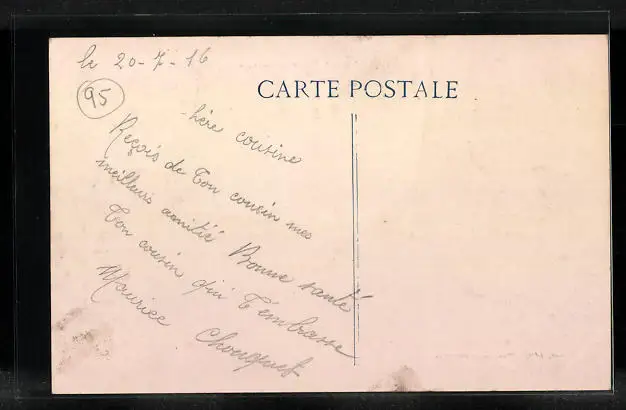 le 20-7-16
95
CARTE POSTALE
chère cousine
Reçois de Ton cousin mes
meilleurs amitié Bonne santé
Ton cousin qui T'embrasse
Maurice Chouquet